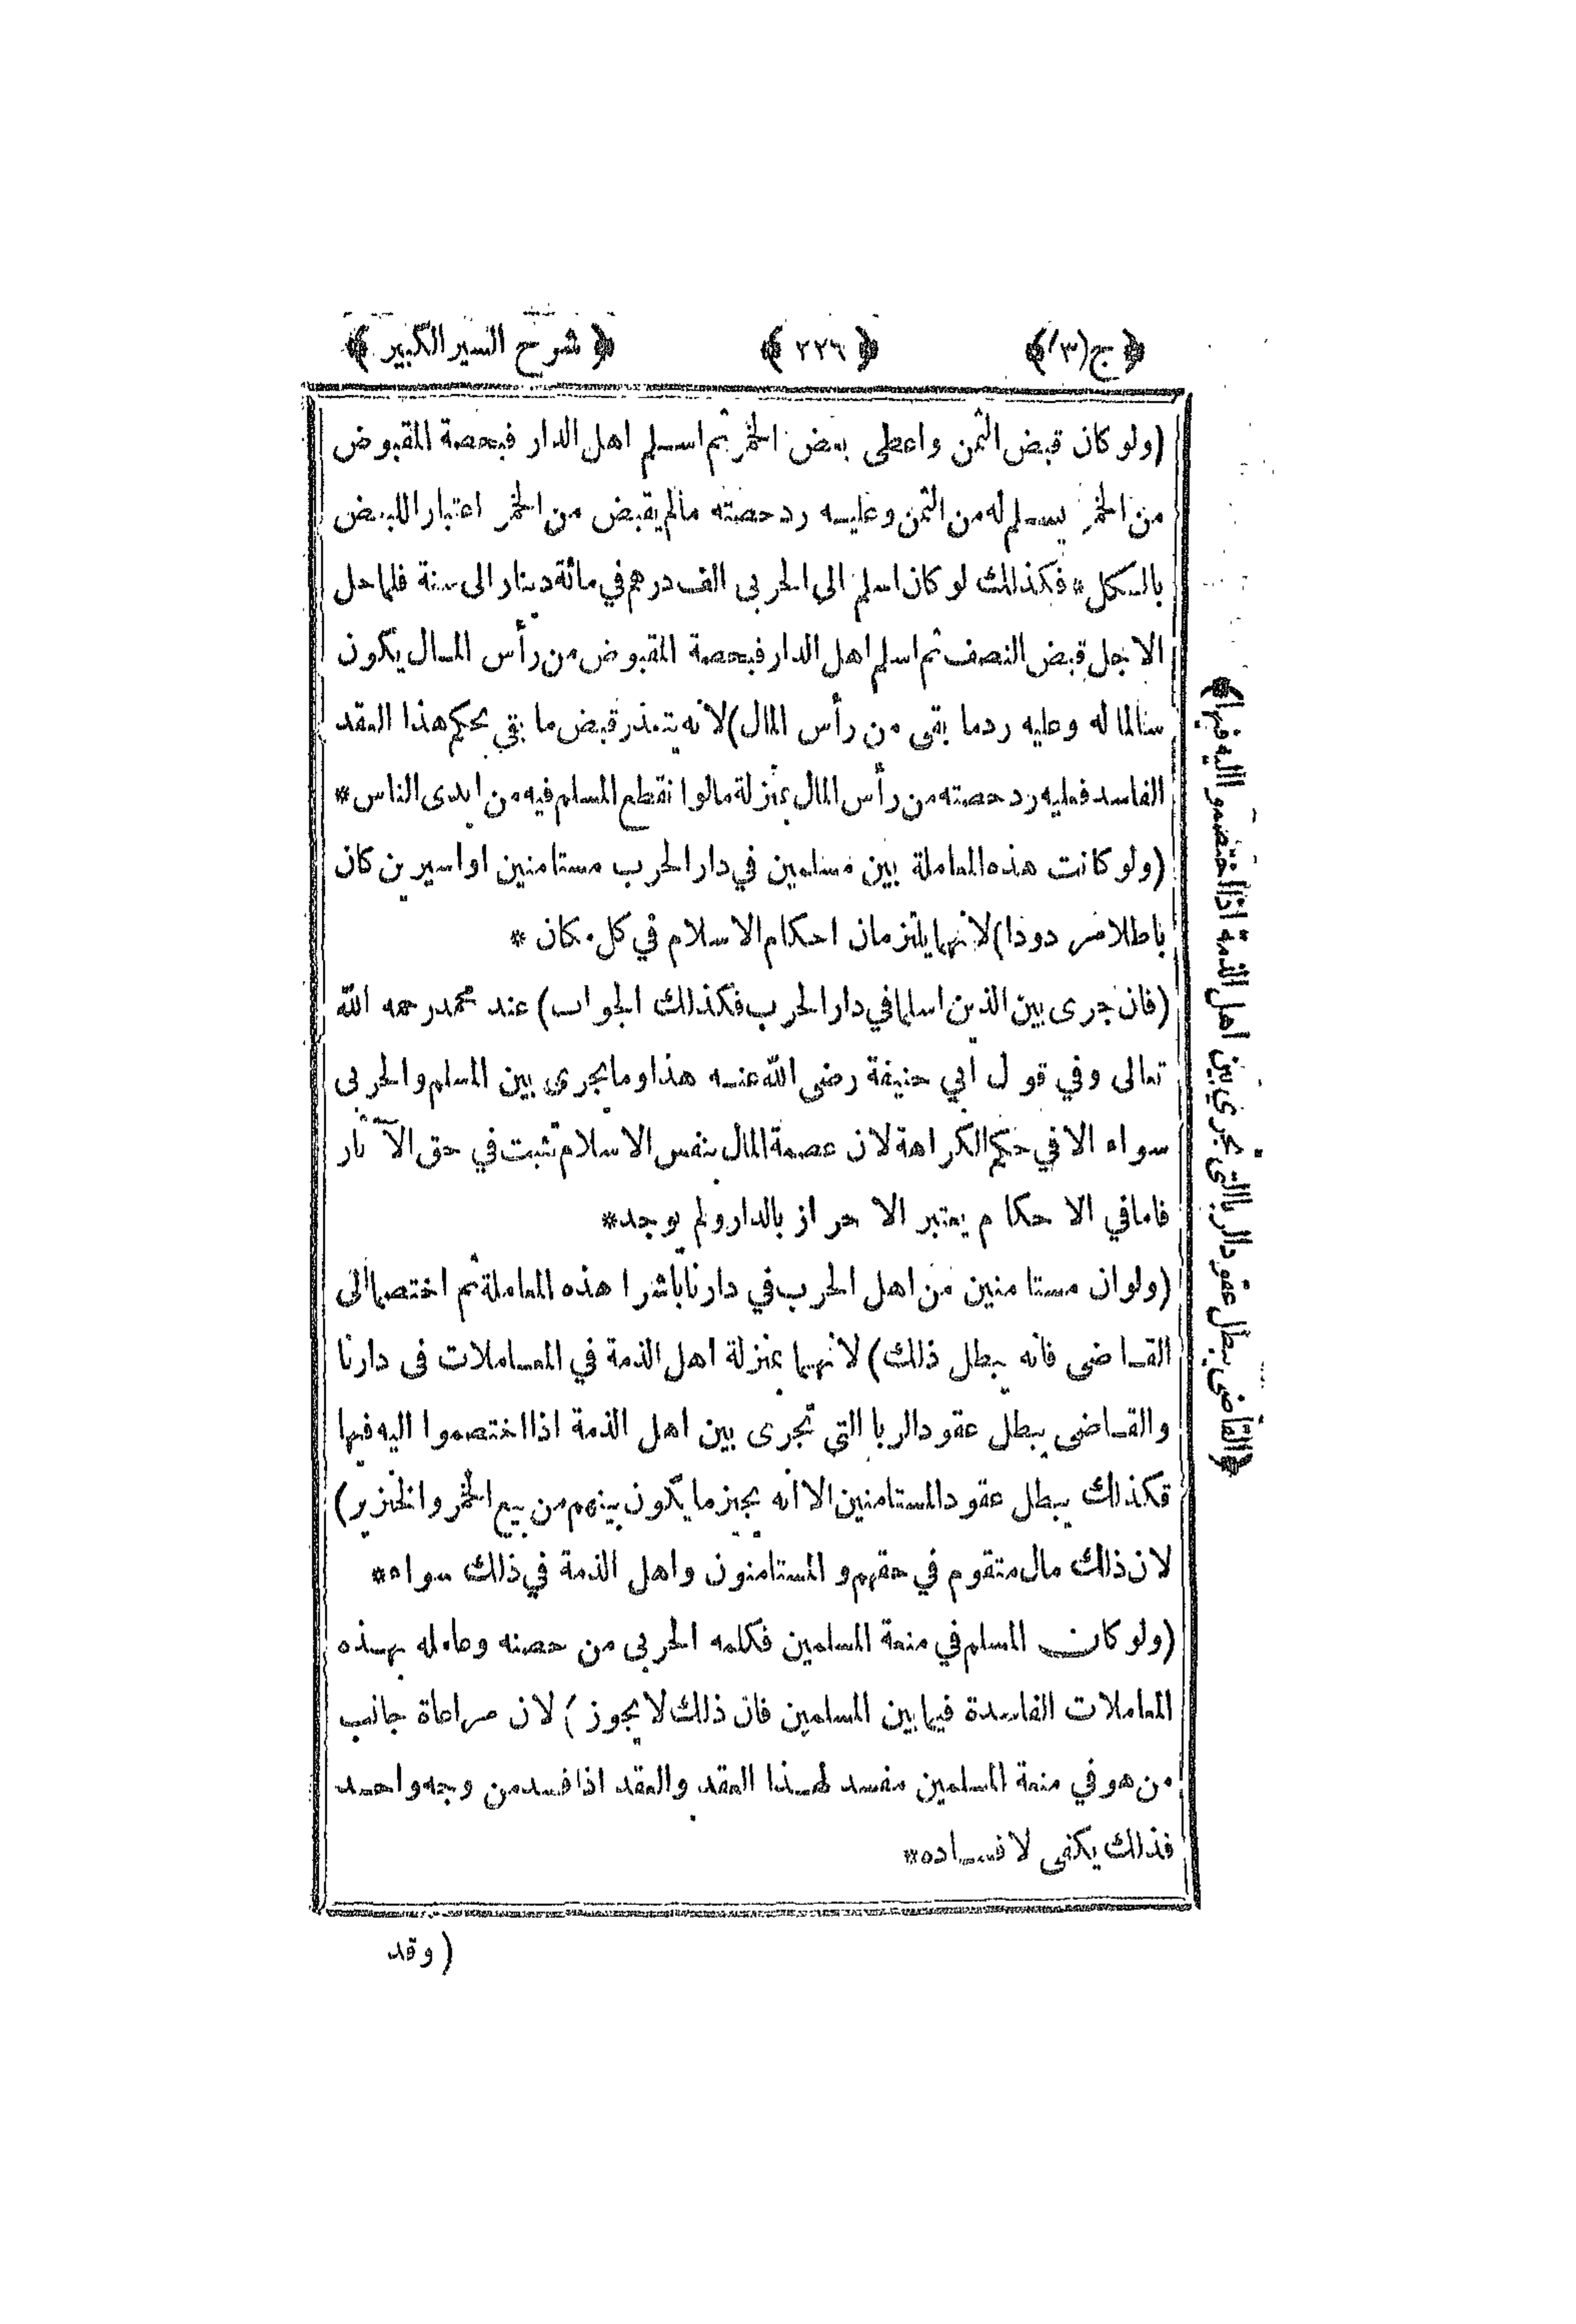 ﴿ج(٣)﴾ ﴿٢٢٦﴾ ﴿شرح السير الكبير﴾
(ولو كان قبض الثمن واعطى بعض الخمر ثم اسلم اهل الدار فبحصة المقبوض
من الخمر يسلم له من الثمن وعليه رد حصته مالم يقبض من الخمر اعتبار اللبعض
بالكل* فكذلك لو كان اسلم الى الحربى الف درهم في مائة دينار الى سنة فلما حل
الاجل قبض النصف ثم اسلم اهل الدار فبحصة المقبوض من رأس المال يكون
سالما له وعليه رد ما بقى من رأس المال) لانه يتعذر قبض ما بقي بحكم هذا العقد
الفاسد فعليه رد حصته من رأس المال بمنزلة مالو انقطع المسلم فيه من ايدى الناس*
(ولو كانت هذه المعاملة بين مسلمين في دار الحرب مستامنين او اسيرين كان
باطلا مردودا) لانهما يلتزمان احكام الاسلام في كل مكان *
(فان جرى بين الذين اسلما في دار الحرب فكذلك الجواب) عند محمد رحمه الله
تعالى وفي قول ابي حنيفة رضى الله عنه هذا وما يجرى بين المسلم والحربى
سواء الا في حكم الكراهة لان عصمة المال بنفس الاسلام تثبت في حق الآثار
فاما في الاحكام يعتبر الاحراز بالدار ولم يوجد*
(ولو ان مستامنين من اهل الحرب في دارنا باشرا هذه المعاملة ثم اختصما الى
القاضى فانه يبطل ذلك) لانهما بمنزلة اهل الذمة في المعاملات فى دارنا
والقاضى يبطل عقود الربا التي تجرى بين اهل الذمة اذا اختصموا اليه فيها
فكذلك يبطل عقود المستامنين الا انه يجيز ما يكون بينهم من بيع الخمر والخنزير)
لان ذلك مال متقوم في حقهم و المستامنون واهل الذمة في ذلك سواء*
(ولو كان المسلم في منعة المسلمين فكلمه الحربى من حصنه وعامله بهذه
المعاملات الفاسدة فيما بين المسلمين فان ذلك لا يجوز) لان مراعاة جانب
من هو في منعة المسلمين مفسد لهذا العقد والعقد اذا فسد من وجه واحد
فذلك يكفى لافساده*
﴿القاضى يبطل عقود الربا التى تجرى بين اهل الذمة اذا اختصموا اليه فيها﴾
(وقد